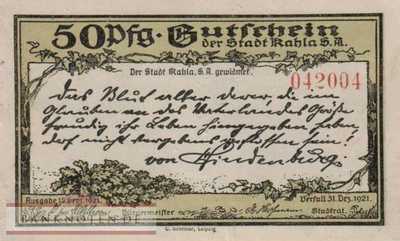 50 Pfg. Gutschein
der Stadt Kahla S.A.
Der Stadt Kahla, S.A. gewidmet.
042004
Das Blut aller derer, die im
Glauben an des Vaterlandes Größe
freudig ihr Leben hingegeben haben,
darf nicht vergebens geflossen sein!
von Hindenburg
Ausgabe 15. Sept. 1921.
Verfall 31. Dez. 1921.
Bürgermeister
Stadtrat.
Leipzig